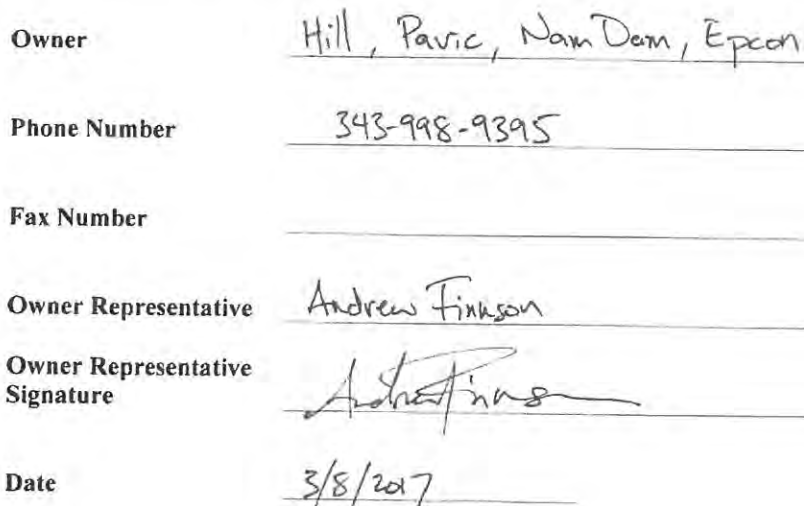 Owner Hill, Pavic, Nam Dam, Epcon
Phone Number 343-998-9395
Fax Number
Owner Representative Andrew Finnson
Owner Representative
Signature
Date 3/8/2017